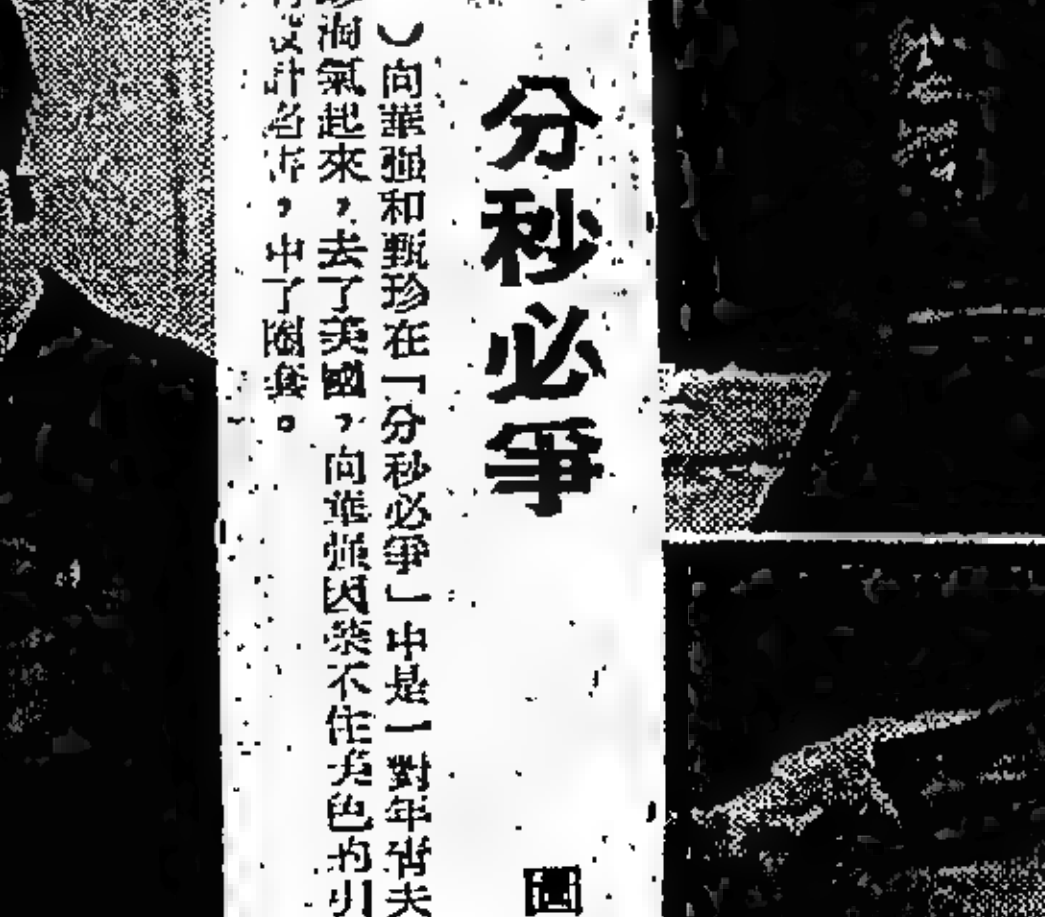 分秒必爭
圖
）向華強和甄珍在「分秒必爭」中是一對年青夫
珍淘氣起來，去了美國，向華強因禁不住美色的引
設計名害，中了圈套。